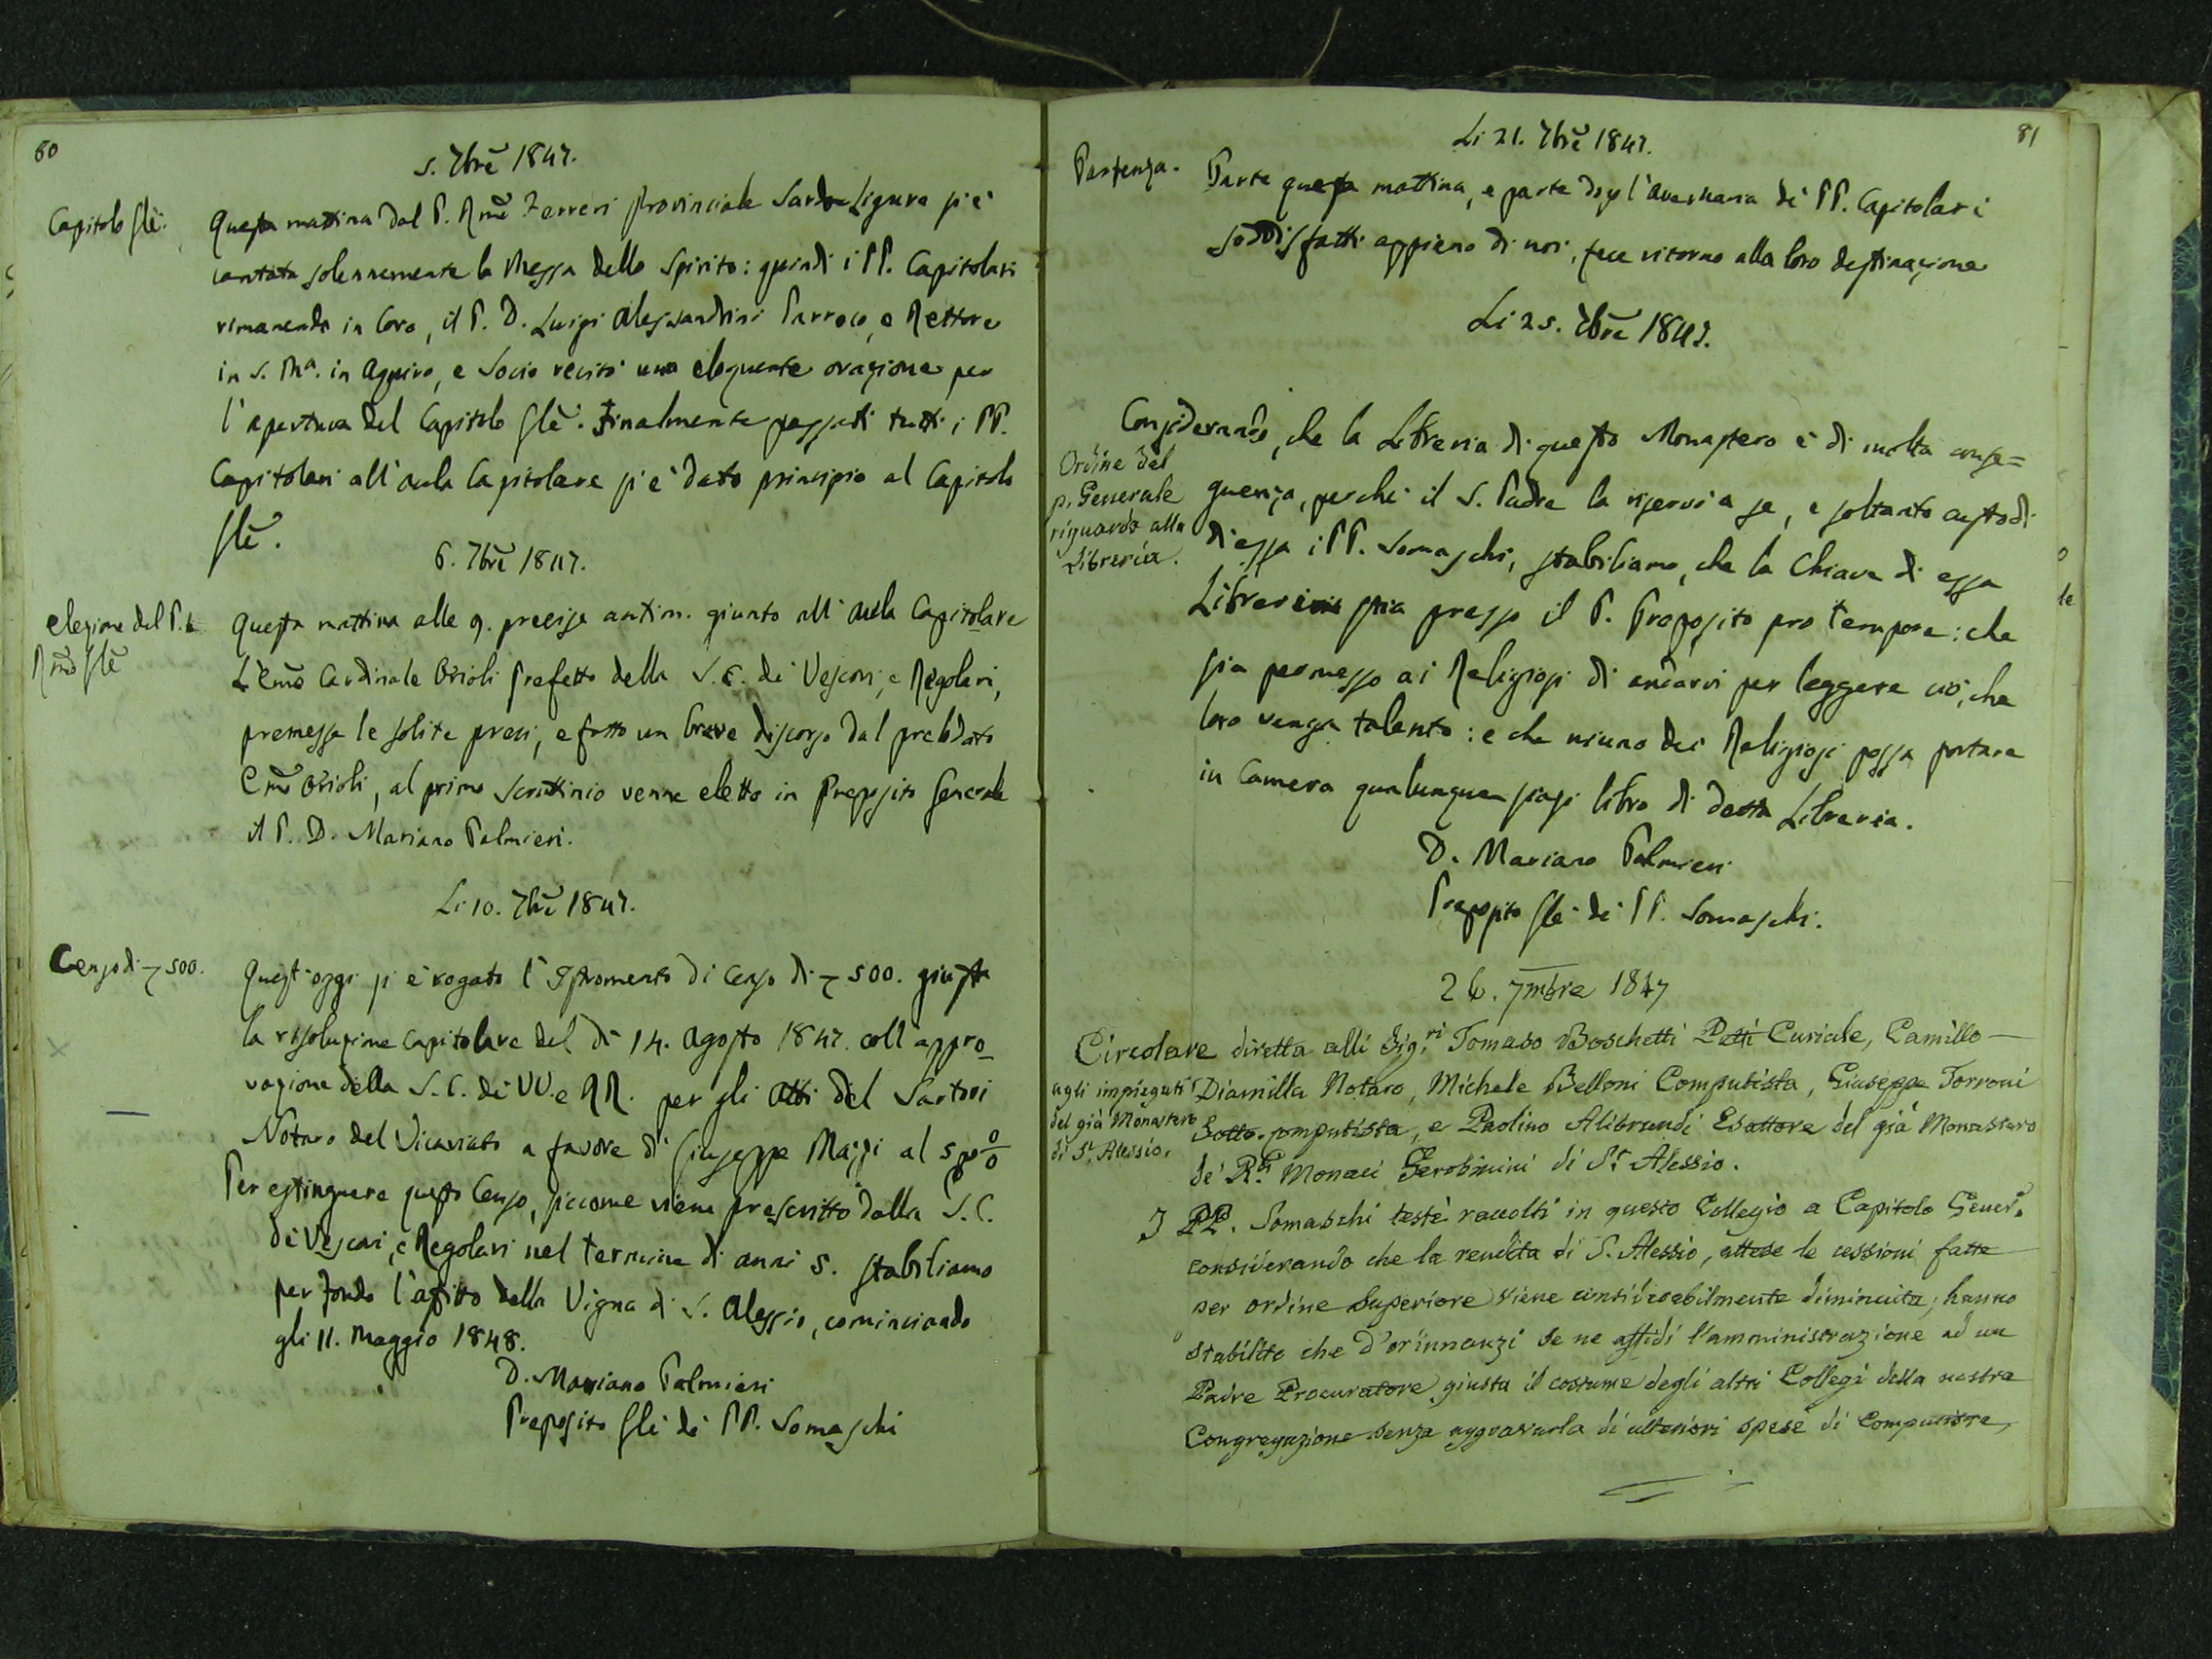 80
5. 7bre 1847.
Capitolo Gle.
Questa mattina dal P. Rmo Ferreri Provinciale Sardo Ligure si è
cantata solennemente la Messa dello Spirito: quindi i PP. Capitolari
rimanendo in Coro, il P. D. Luigi Alessandrini Parroco, e Rettore
in S. Ma. in Aquiro, e Socio recitò una eloquente orazione per
l'apertura del Capitolo Gle. Finalmente passati tutti i PP.
Capitolari all'aula Capitolare si è dato principio al Capitolo
Gle.
6. 7bre 1847.
elezione del P.
Rmo Gle
Questa mattina alle 9. precise antim. giunto all'aula Capitolare
L'Emo Cardinale Orioli Prefetto della S. C. de' Vescovi, e Regolari,
premesse le solite preci, e fatto un breve discorso dal prelodato
Emo Orioli, al primo scruttinio venne eletto in Preposito Generale
il P. D. Mariano Palmieri.
Li 10. 7bre 1847.
Censo di 500.
Quest'oggi si è rogato l'Istromento di Censo di 500. giusta
la risoluzione Capitolare del dì 14. Agosto 1847. coll'appro-
vazione della S. C. de' VV. e RR. per gli Atti del Sartori
Notaro del Vicariato a favore di Giuseppe al 5 p%
Per estinguere questo Censo, siccome viene prescritto dalla S. C.
de' Vescovi, e Regolari nel termine di anni 5. stabiliamo
per fondo l'afitto della Vigna di S. Alessio, cominciando
gli 11. Maggio 1848.
D. Mariano Palmieri
Preposito Gle de' PP. Somaschi
81
Li 21. 7bre 1847.
Partenza.
Parte questa mattina, e parte dopo l' de' PP. Capitolari
soddisfatti appieno di noi, fece ritorno alla loro destinazione
Li 25. 7bre 1847.
Ordine del
p. Generale
riguardo alla
Libreria.
Considerando, che la Libreria di questo Monastero è di molta conse=
guenza, perchè il S. Padre la riservò a se, e soltanto custodi
di essa i PP. Somaschi, stabiliamo, che la Chiave di essa
Libreria stia presso il P. Preposito pro tempore: che
sia permesso ai Religiosi di andarvi per leggere ciò, che
loro venga talento: e che niuno dei Religiosi possa portare
in Camera qualunque siasi libro di detta Libreria.
D. Mariano Palmieri
Preposito Gle de' PP. Somaschi.
26. 7mbre 1847
Circolare diretta alli Sig.ri Tomaso Boschetti Patti Curiale, Camillo
agli impiegati
del già Monastero
di St. Alessio.
Diamilla Notaro, Michele Belloni Computista, Giuseppe Torroni
Sotto-computista, e Paolino Alibrandi Esattore del già Monastero
de' R.di Monaci Gerolimini di St. Alessio.
I PP. Somaschi testè raccolti in questo Collegio a Capitolo Gener.
considerando che la rendita di S. Alessio, attese le cessioni fatte
per ordine Superiore viene considerabilmente diminuita, hanno
stabilito che d'orinnanzi se ne affidi l'amministrazione ad un
Padre Procuratore giusta il costume degli altri Collegi della nostra
Congregazione senza aggravarla di ulteriori spese di Computista,